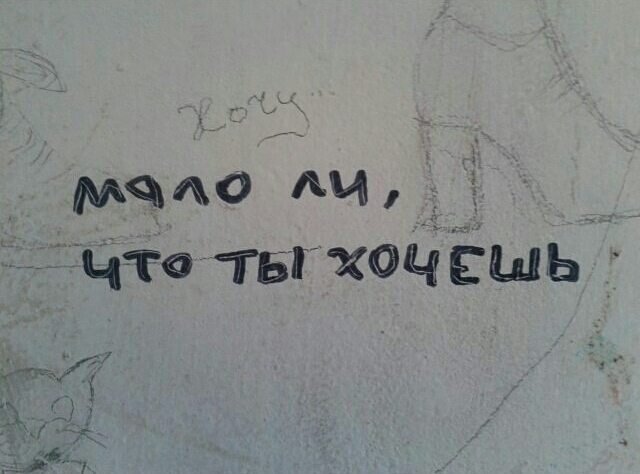 Хочу...
мало ли,
что ты хочешь